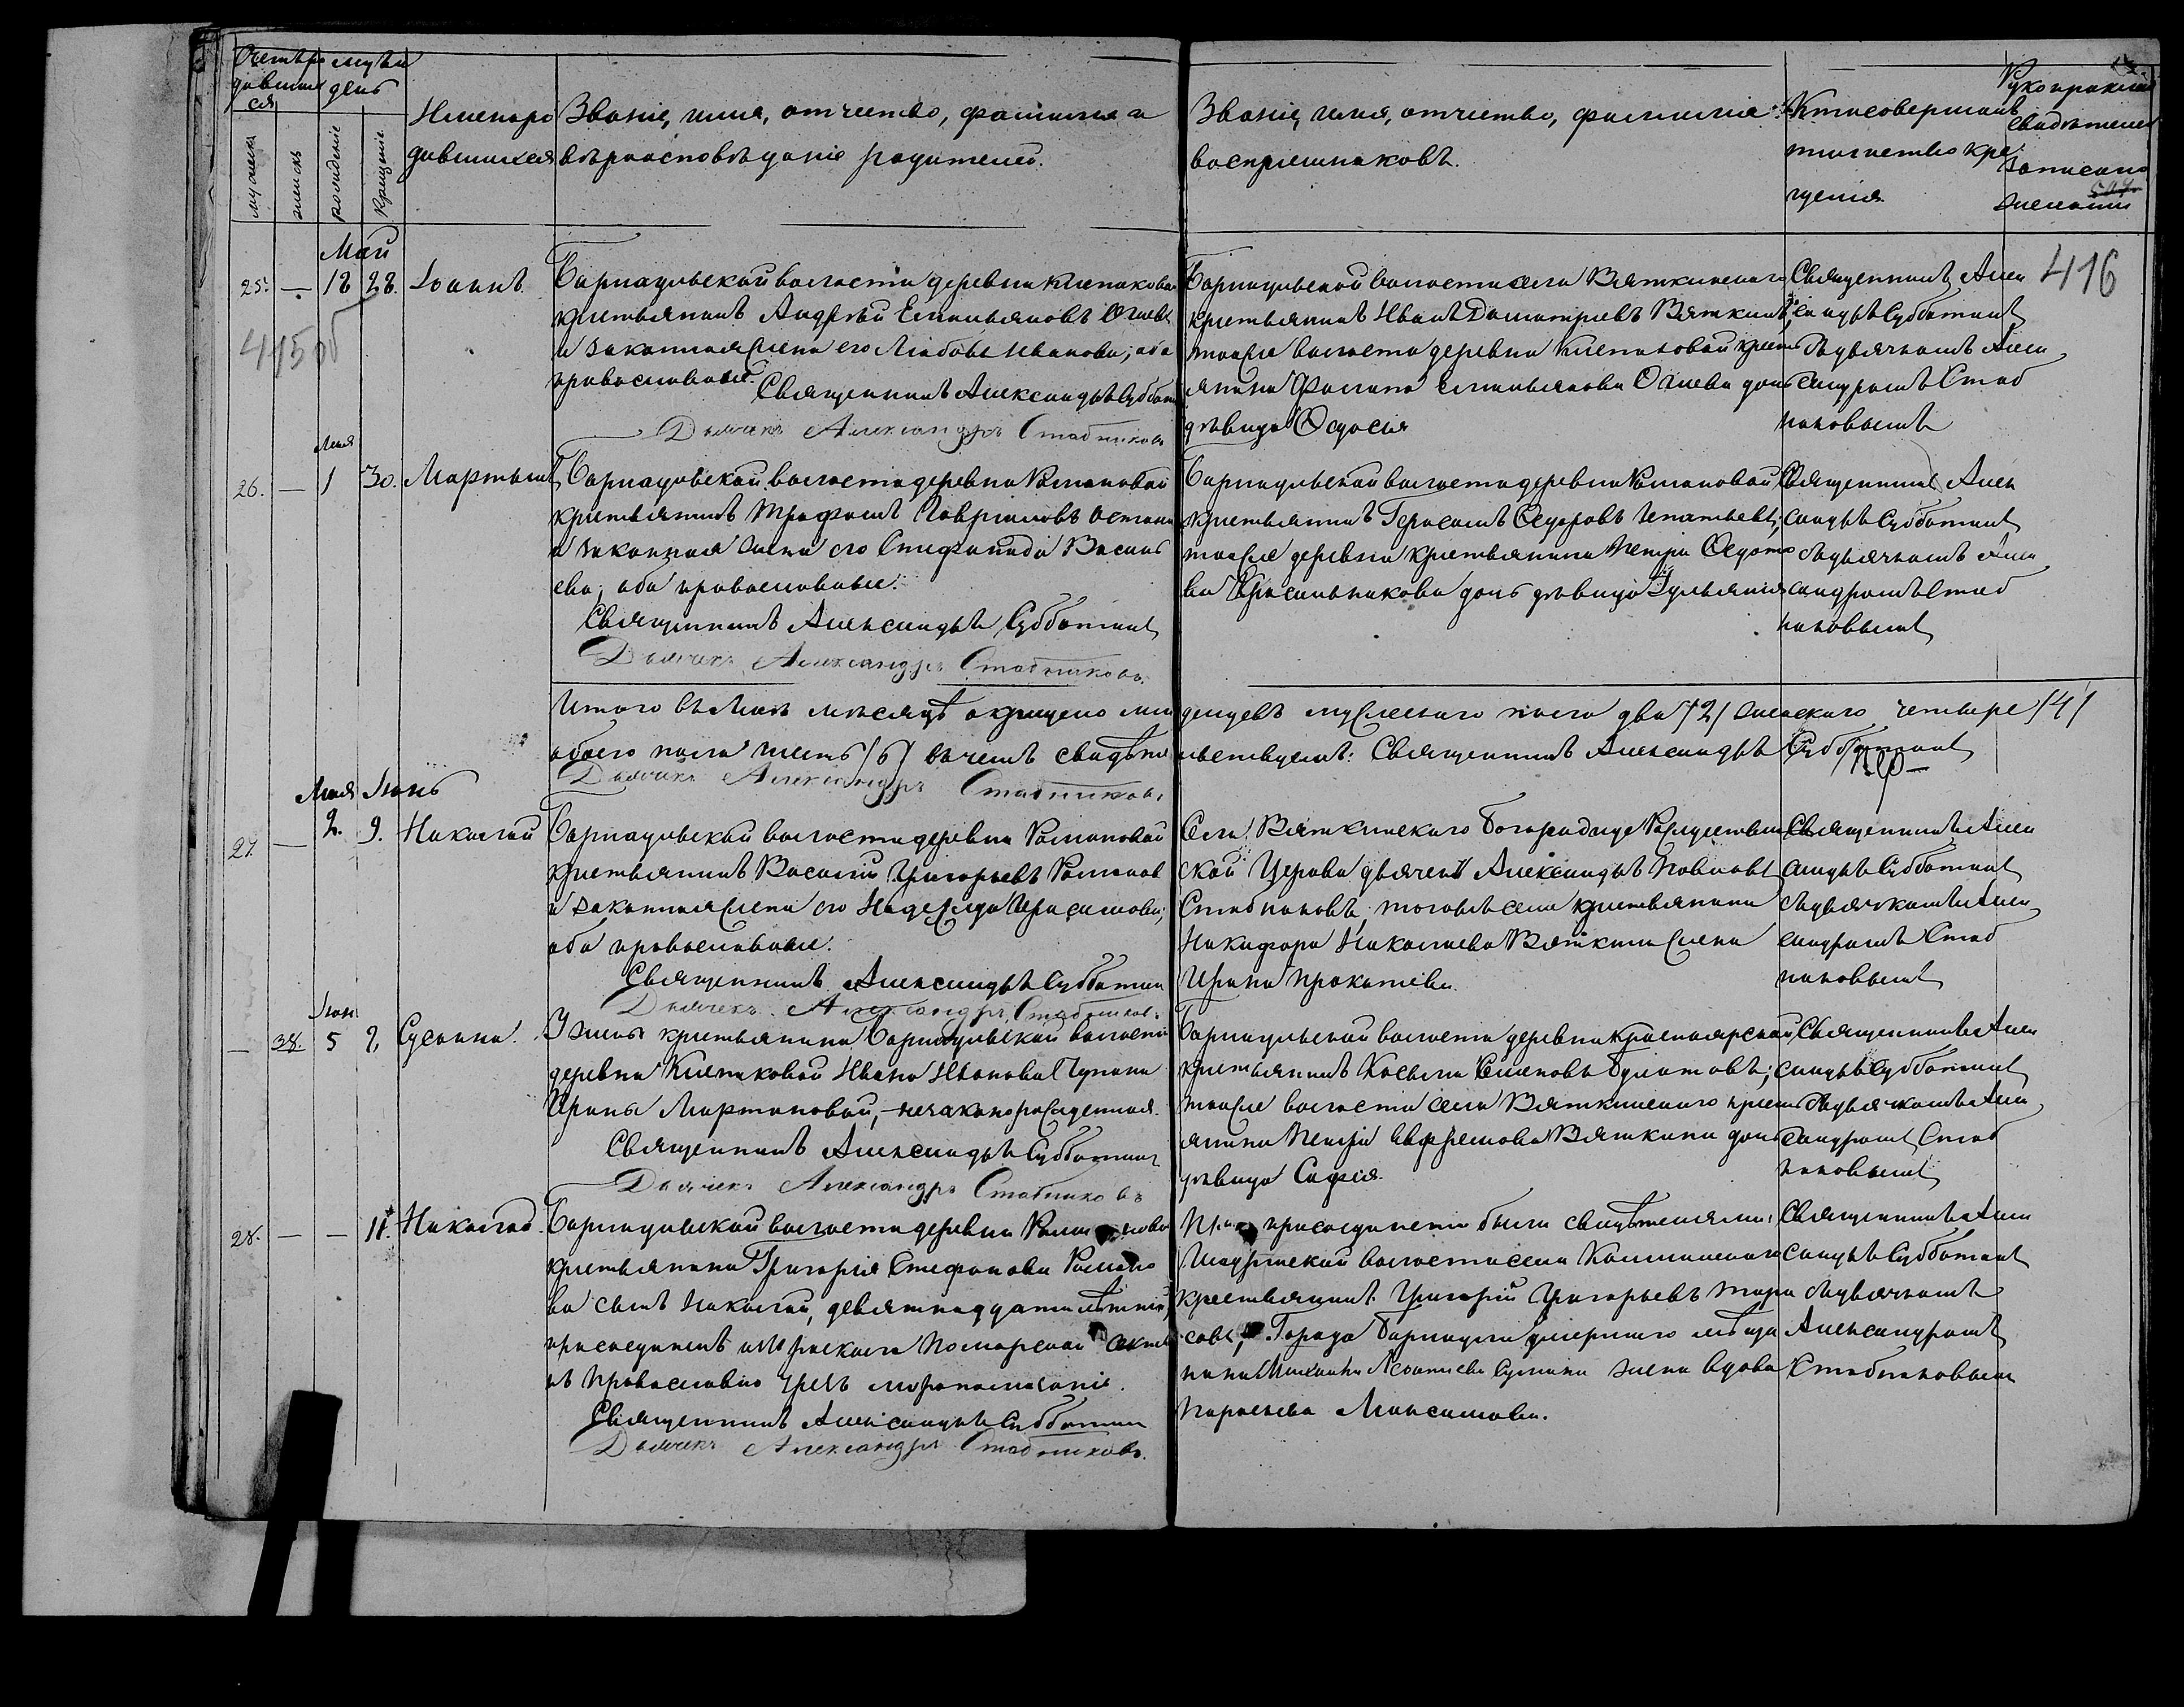 Счетъ ро мѣсяцъ
дивших день
ся
мужеск
женскъ
рожденіе
крещеніе
Имена ро
дившихся
Званіе, имя, отчество, фамилия и
вѣроисповѣданіе родителей.
Званіе, имя, отчество, фамилия
воспріемниковъ.
Кто совершалъ
таинство кре
щенія
Рукоприкла
свидѣтелей
записано
желанію
416
415 об
Май
25. — 18 28. Іоаннъ.
Барнаульской волости деревни Клепиковой
крестьянинъ Андрей Емельяновъ Огневъ
и законная жена его Любовь Иванова; оба
православные.
Священникъ Александръ Субботин
Дьячекъ Александръ Стабниковъ
Барнаульской волости села Вяткинскаго
крестьянинъ Иванъ Димитріевъ Вяткинъ;
тойже волости деревни Клепиковой крест
янина Филипа Емельянова Огнева дочь
дѣвица Ѳедосія
Священникъ Алек
сандръ Субботинъ
съ дьячкомъ Алек
сандромъ Стаб
никовымъ
Мая
26. — 1 30. Мартынъ
Барнаульской волости деревни Романовой
крестьянинъ Трофимъ Гавриловъ Остани
и законная жена его Степанида Василь
ева; оба православные.
Священникъ Александръ Субботинъ
Дьячекъ Александръ Стабниковъ.
Барнаульской волости деревни Романовой
крестьянинъ Герасимъ Ѳедоровъ Игнатьевъ;
тойже деревни крестьянина Петра Ѳедото
ва Красильникова дочь дѣвица Іульянія
Священникъ Алек
сандръ Субботинъ
съ дьячкомъ Алек
сандромъ Стаб
никовымъ
Итого въ Маѣ мѣсяцѣ окрещено мла денцевъ мужескаго пола два /2/ женскаго четыре /4/
обоего пола шесть /6/ въ чемъ свидѣте льствуемъ: Священникъ Александръ Субботинъ
Дьячекъ Александръ Стабниковъ
Мая Іюнь
27. — 2. 9. Николай
Барнаульской волости деревни Романовой
крестьянинъ Василій Григорьевъ Романов
и законная жена его Надежда Герасимова;
оба православные.
Священникъ Александръ Субботин
Дьячекъ Александръ Стабниковъ
Села Вяткинскаго Богородице Рождествен
ской Церкви дьячекъ Александръ Павловъ
Стабниковъ; тогоже села крестьянина
Никифора Николаева Вяткина жена
Ирина Прокопіева.
Священникъ Алек
сандръ Субботинъ
съ дьячкомъ Алек
сандромъ Стаб
никовымъ
Іюня
— 38. 5 9. Сусанна.
У жены крестьянина Барнаульской волости
деревни Клепиковой Ивана Иванова Чупина
Ирины Мартиновой, незаконорожденная.
Священникъ Александръ Субботинъ
Дьячекъ Александръ Стабниковъ
Барнаульской волости деревни Красноярской
крестьянинъ Косьма Семеновъ Булатовъ;
тойже волости села Вяткинскаго крест
янина Петра Евфремова Вяткина дочь
дѣвица Софія.
Священникъ Алек
сандръ Субботинъ
съ дьячкомъ Алек
сандромъ Стаб
никовымъ
28. — — 11. Николай.
Барнаульской волости деревни Романовой
крестьянина Григорія Стефанова Романо
ва сынъ Николай, девятнадцати лѣтній,
присоединенъ изъ раскола Поморской секты
къ православію чрезъ мѵропомазаніе.
Священникъ Александръ Субботин
Дьячекъ Александръ Стабниковъ.
При присоединеніи были свидѣтелями:
Шадринской волости села Калманскаго
крестьянинъ Григорій Григорьевъ Тара
совъ; Города Барнаула умершаго мѣща
нина Михаила Леонтьева жена вдова
Параскева Максимова.
Священникъ Алек
сандръ Субботинъ
съ дьячкомъ
Александромъ
Стабниковымъ